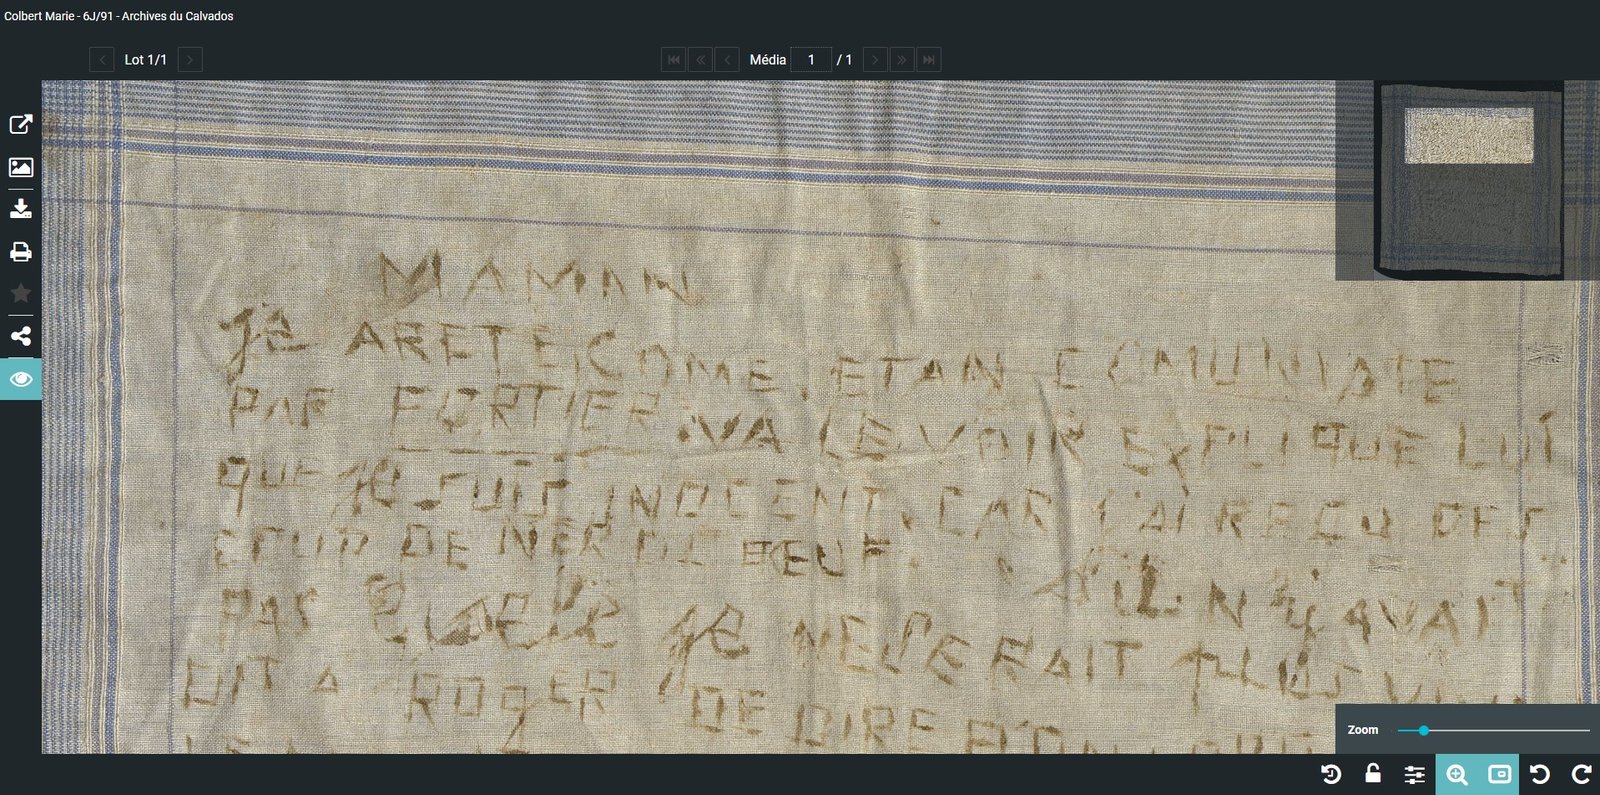 Colbert Marie - 6J/91 - Archives du Calvados
Lot 1/1
Média 1 / 1
MAMAN
je ARETE COME ETAN COMUNISTE
PAR FORTIER VA LE VOIR EXPLIQUE LUI
QUE je SUIS INOCENT, CAR J'AI REÇU DES
COUP DE NERF DE BŒUF.
S'IL N'Y AVAIT
PAS je NE SERAIT PLUS
DIT A ROGER DE DIRE
Zoom